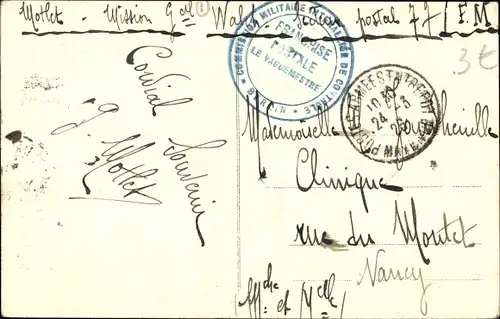 Motlet - Mission Gal postal 77 / F.M
COMMISSION MILITAIRE INTERALLIÉE DE CONTROLE
* BERLIN *
FRANCHISE
POSTALE
LE VAGUEMESTRE
3€
10
24 - 3
20
Cordial
Souvenir
G. Motlet
Mademoiselle
Clinique
rue du Montet
Nancy
Mthe et Mlle/